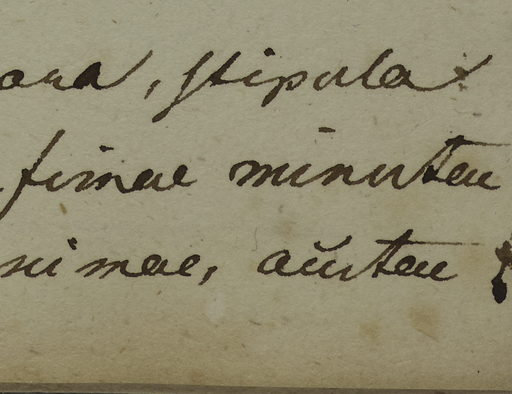 ara, stipula
fimae minutae
nimae, acutae